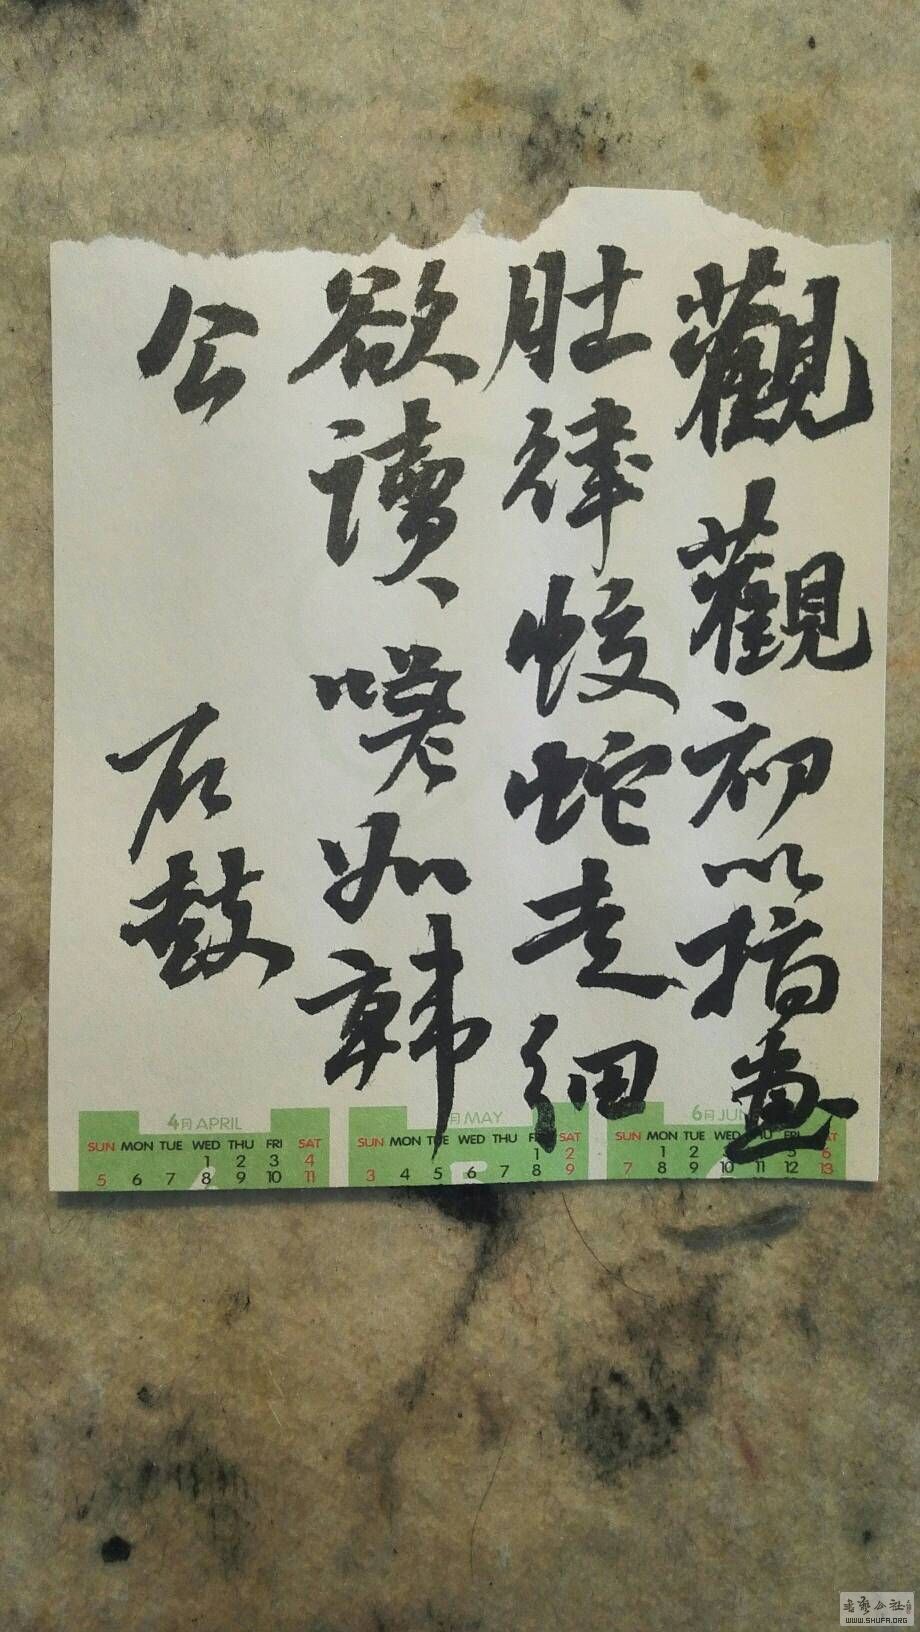 觀觀初以指畫
肚律蛟蛇走細
欲讀、嗟如韓
公
石鼓
4月 APRIL
SUN MON TUE WED THU FRI SAT
1 2 3 4
5 6 7 8 9 10 11
月 MAY
SUN MON TUE WED THU FRI SAT
1 2
3 4 5 6 7 8 9
6月 JUN
SUN MON TUE WED THU FRI SAT
1 2 3 4 5 6
7 8 9 10 11 12 13
書法公社
WWW.SHUFA.ORG